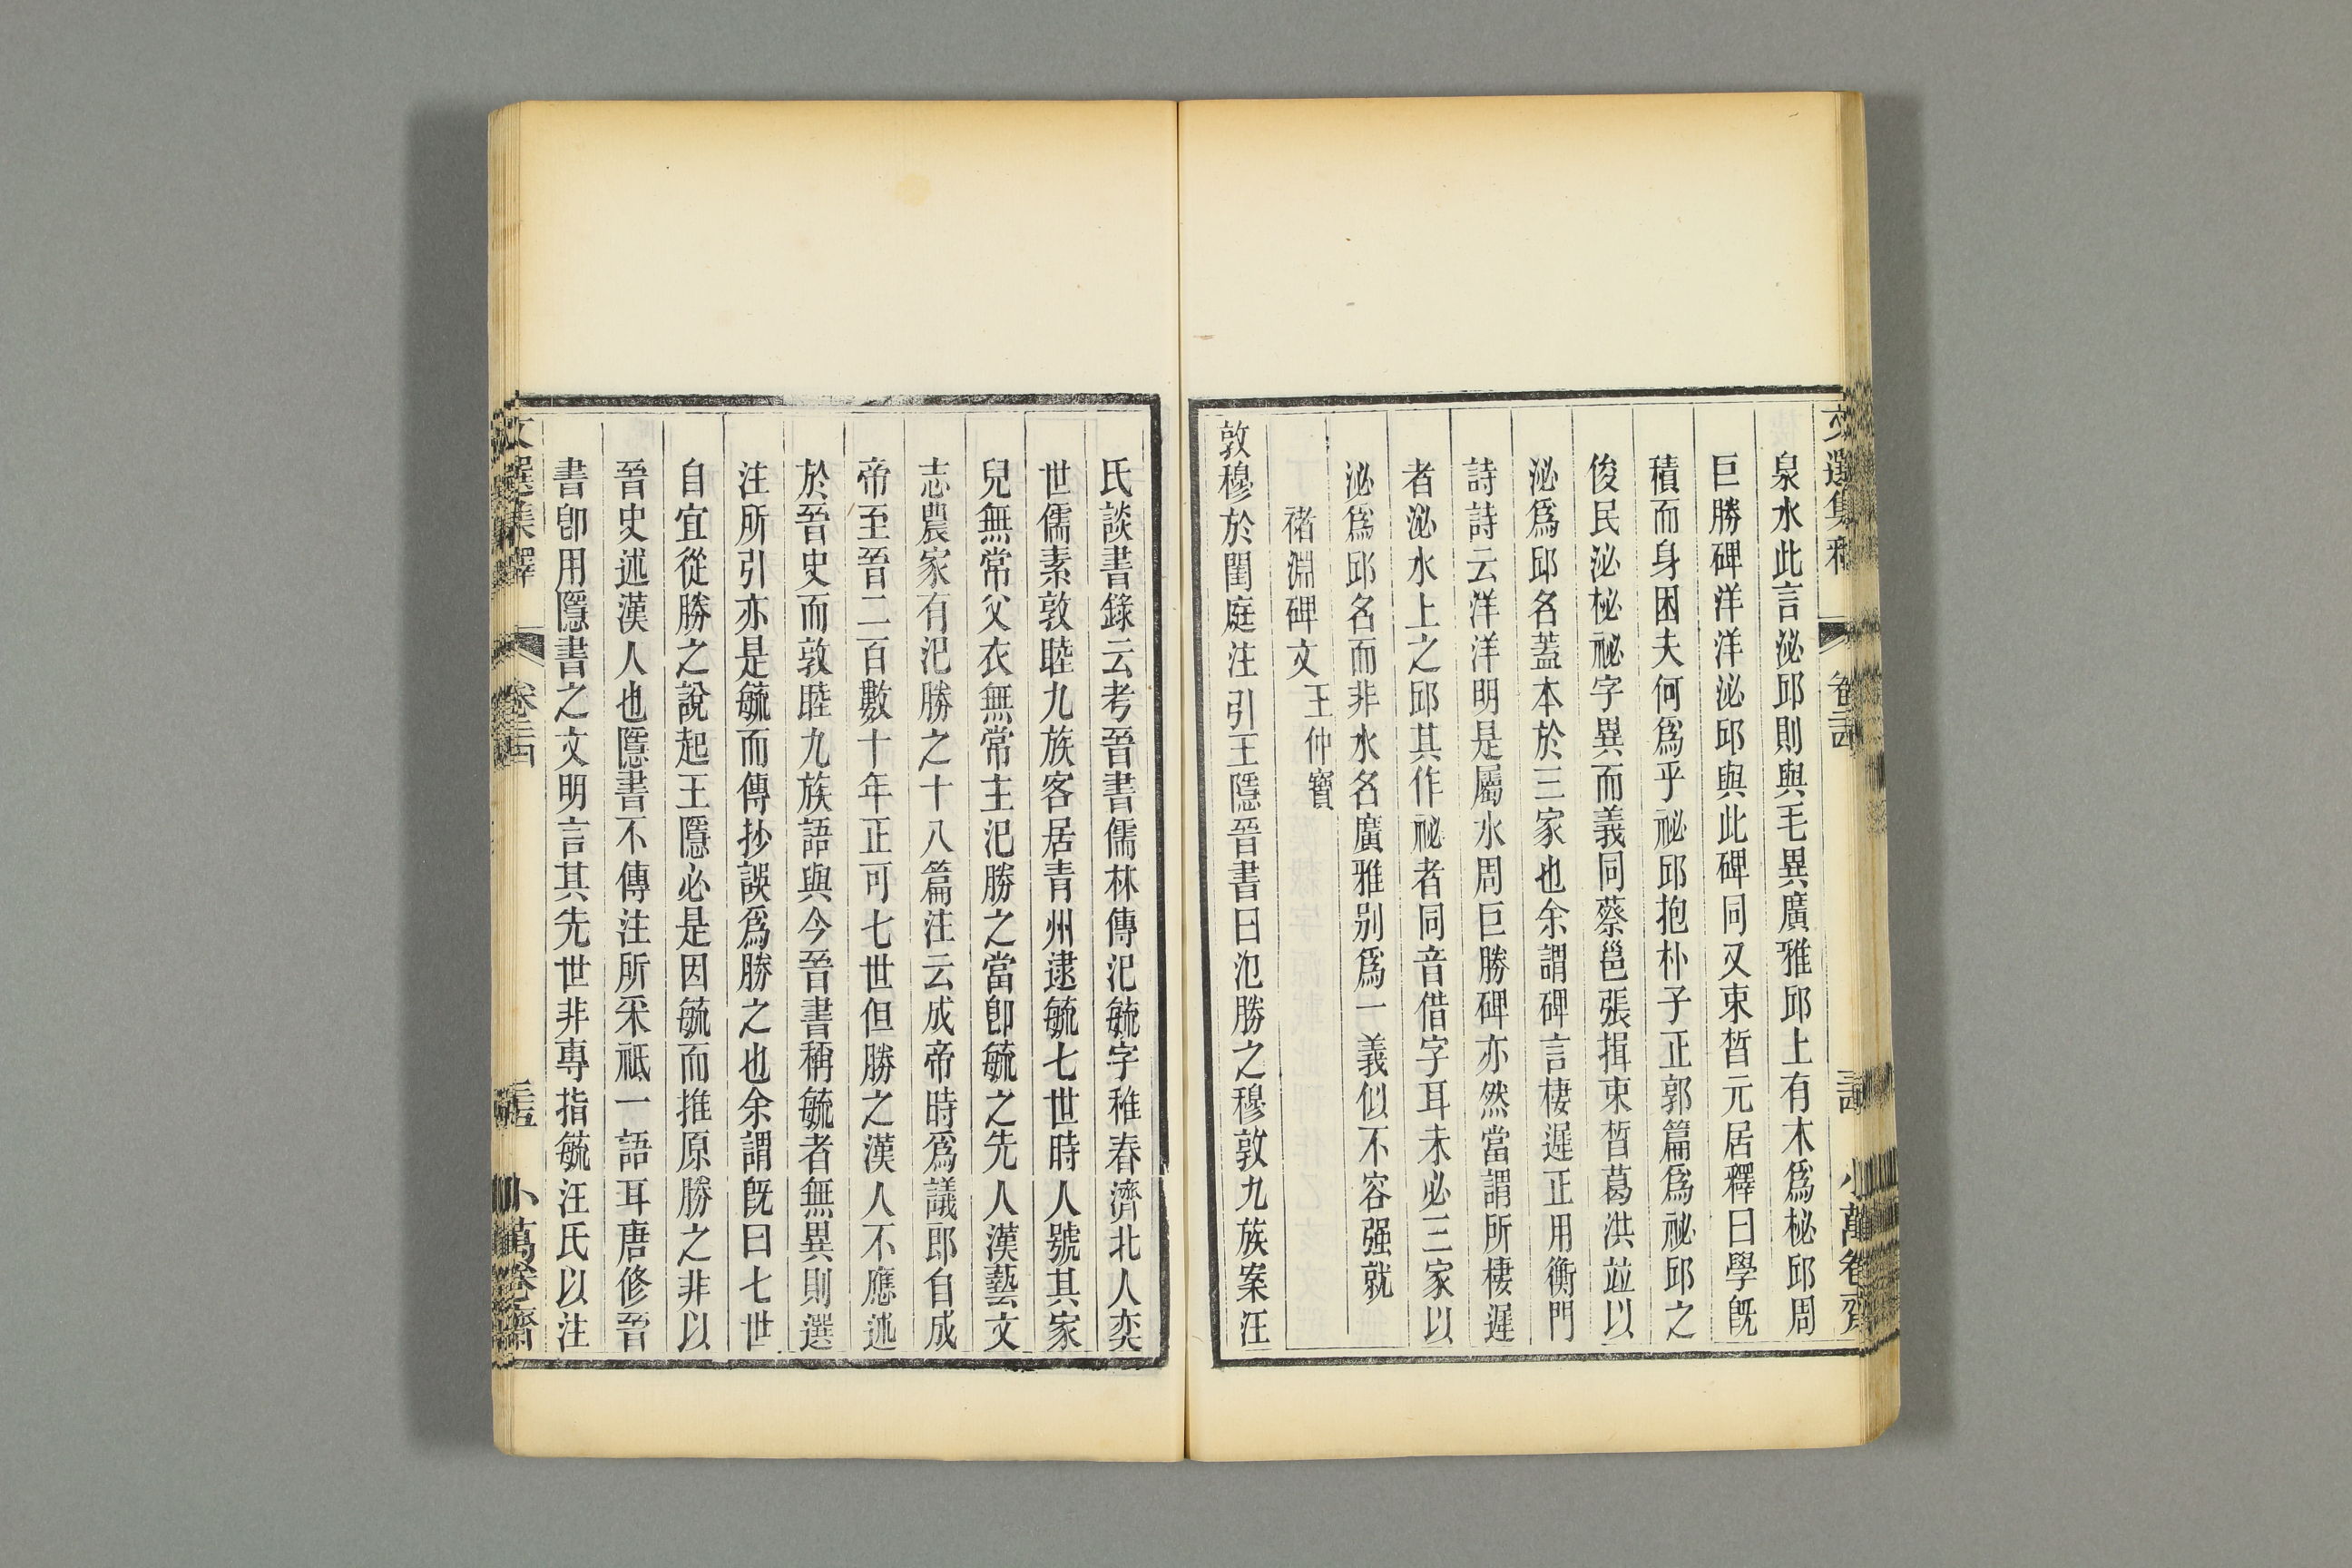 文選集釋 卷二十四 三十四 小萬卷齋
泉水此言泌邱則與毛異廣雅邱上有木爲柲邱周
巨勝碑洋洋泌邱與此碑同又束晳元居釋曰學旣
積而身困夫何爲乎祕邱抱朴子正郭篇爲祕邱之
俊民泌柲祕字異而義同蔡邕張揖束晳葛洪竝以
泌爲邱名蓋本於三家也余謂碑言棲遲正用衡門
詩詩云洋洋明是屬水周巨勝碑亦然當謂所棲遲
者泌水上之邱其作祕者同音借字耳未必三家以
泌爲邱名而非水名廣雅別爲一義似不容强就
褚淵碑文 王仲寶
敦穆於閨庭注引王隱晉書曰氾勝之穆敦九族案汪
氏談書錄云考晉書儒林傳氾毓字稚春濟北人奕
世儒素敦睦九族客居青州逮毓七世時人號其家
兒無常父衣無常主氾勝之當卽毓之先人漢藝文
志農家有氾勝之十八篇注云成帝時爲議郎自成
帝至晉二百數十年正可七世但勝之漢人不應述
於晉史而敦睦九族語與今晉書稱毓者無異則選
注所引亦是毓而傳抄誤爲勝之也余謂旣曰七世
自宜從勝之說起王隱必是因毓而推原勝之非以
晉史述漢人也隱書不傳注所采祗一語耳唐修晉
書卽用隱書之文明言其先世非專指毓汪氏以注
文選集釋 卷二十四 三十五 小萬卷齋